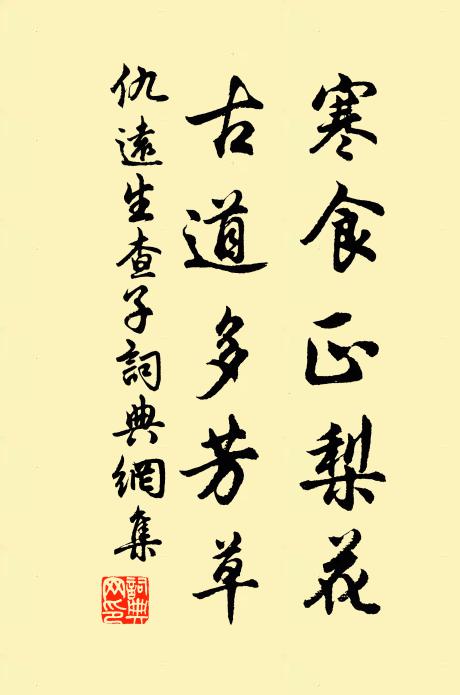 寒食正梨花
古道多芳草
仇遠生查子詞典網集
詞典網印